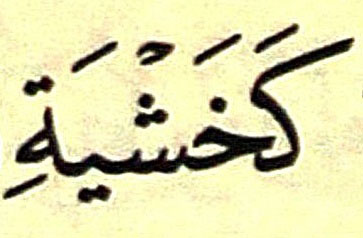 كَخَشْيَةِ